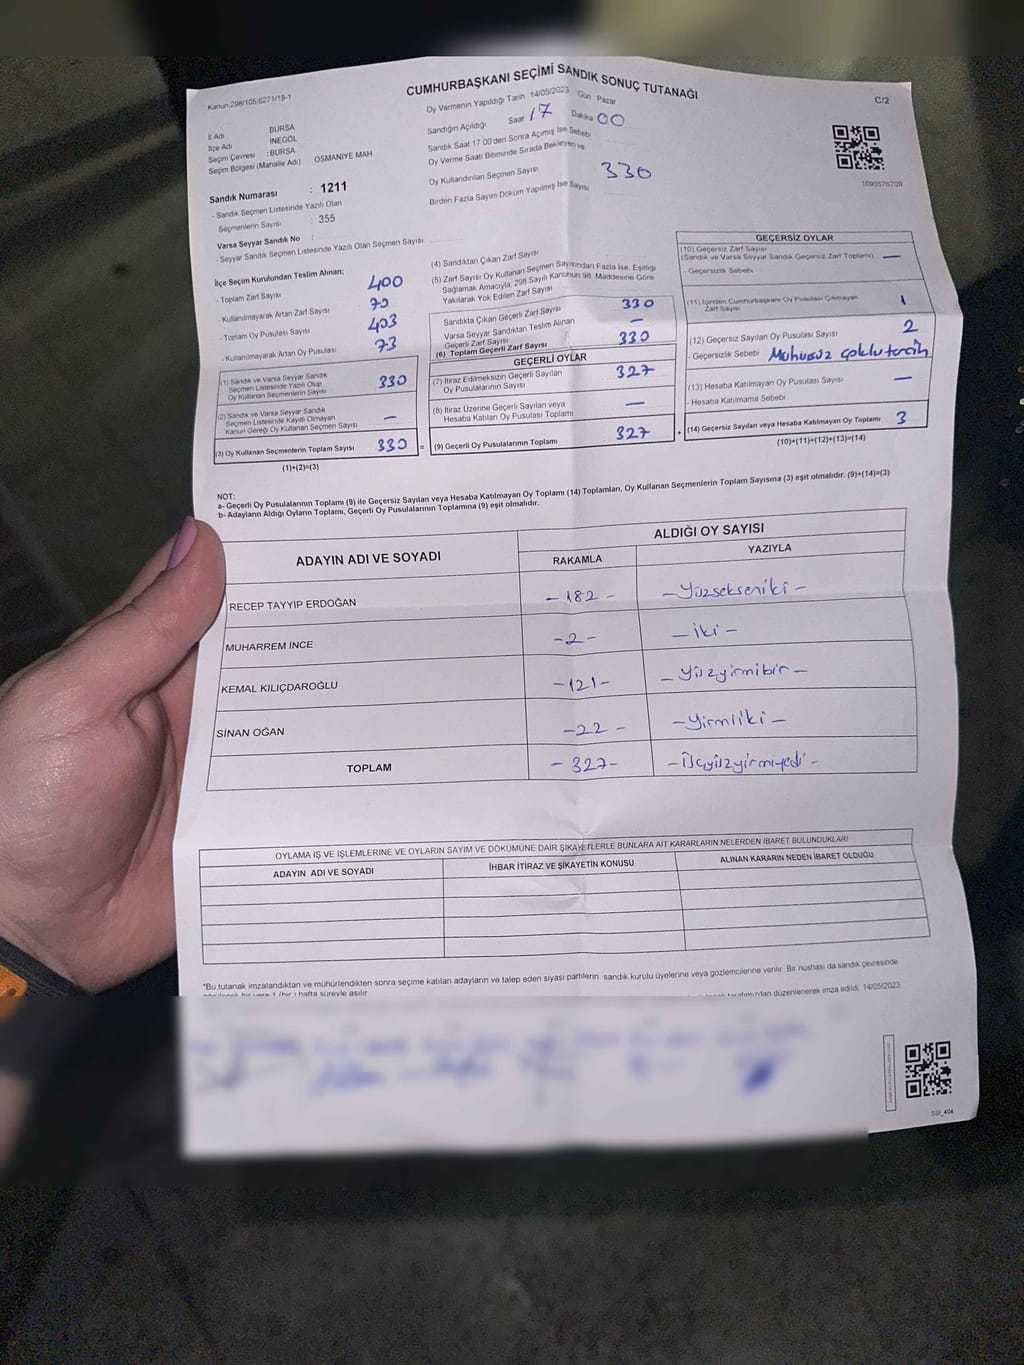 Kanun:298/105.6271/18-1
CUMHURBAŞKANI SEÇİMİ SANDIK SONUÇ TUTANAĞI
C/2
Oy Vermenin Yapıldığı Tarih 14/05/2023 Gün Pazar
Sandığın Açıldığı Saat 17 Dakika 00
Sandık Saat 17.00'den Sonra Açılmış İse Sebebi
Oy Verme Saati Bitiminde Sırada Bekleyen ve
Oy Kullandırılan Seçmen Sayısı 330
Birden Fazla Sayım Döküm Yapılmış İse Sayısı
İl Adı BURSA
İlçe Adı İNEGÖL
Seçim Çevresi : BURSA
Seçim Bölgesi (Mahalle Adı) OSMANİYE MAH
1093576709
Sandık Numarası : 1211
- Sandık Seçmen Listesinde Yazılı Olan
Seçmenlerin Sayısı : 355
Varsa Seyyar Sandık No :
- Seyyar Sandık Seçmen Listesinde Yazılı Olan Seçmen Sayısı
İlçe Seçim Kurulundan Teslim Alınan;
- Toplam Zarf Sayısı 400
- Kullanılmayarak Artan Zarf Sayısı 70
- Toplam Oy Pusulası Sayısı 403
- Kullanılmayarak Artan Oy Pusulası 73
(1) Sandık ve Varsa Seyyar Sandık
Seçmen Listesinde Yazılı Olup
Oy Kullanan Seçmenlerin Sayısı 330
(2) Sandık ve Varsa Seyyar Sandık
Seçmen Listesinde Kayıtlı Olmayan
Kanun Gereği Oy Kullanan Seçmen Sayısı —
(3) Oy Kullanan Seçmenlerin Toplam Sayısı 330 =
(1)+(2)=(3)
(4) Sandıktan Çıkan Zarf Sayısı
(5) Zarf Sayısı Oy Kullanan Seçmen Sayısından Fazla İse, Eşitliği
Sağlamak Amacıyla, 298 Sayılı Kanunun 98. Maddesine Göre
Yakılarak Yok Edilen Zarf Sayısı
Sandıkta Çıkan Geçerli Zarf Sayısı 330
Varsa Seyyar Sandıktan Teslim Alınan
Geçerli Zarf Sayısı —
(6) Toplam Geçerli Zarf Sayısı 330
GEÇERLİ OYLAR
(7) İtiraz Edilmeksizin Geçerli Sayılan
Oy Pusulalarının Sayısı 327
(8) İtiraz Üzerine Geçerli Sayılan veya
Hesaba Katılan Oy Pusulası Toplamı —
(9) Geçerli Oy Pusulalarının Toplamı 327 +
GEÇERSİZ OYLAR
(10) Geçersiz Zarf Sayısı
(Sandık ve Varsa Seyyar Sandık Geçersiz Zarf Toplamı) —
- Geçersizlik Sebebi
(11) İçinden Cumhurbaşkanı Oy Pusulası Çıkmayan
Zarf Sayısı 1
(12) Geçersiz Sayılan Oy Pusulası Sayısı 2
- Geçersizlik Sebebi Mühürsüz çoklu tercih
(13) Hesaba Katılmayan Oy Pusulası Sayısı —
- Hesaba Katılmama Sebebi
(14) Geçersiz Sayılan veya Hesaba Katılmayan Oy Toplamı 3
(10)+(11)+(12)+(13)=(14)
NOT:
a- Geçerli Oy Pusulalarının Toplamı (9) ile Geçersiz Sayılan veya Hesaba Katılmayan Oy Toplamı (14) Toplamları, Oy Kullanan Seçmenlerin Toplam Sayısına (3) eşit olmalıdır. (9)+(14)=(3)
b- Adayların Aldığı Oyların Toplamı, Geçerli Oy Pusulalarının Toplamına (9) eşit olmalıdır.
ADAYIN ADI VE SOYADI
ALDIĞI OY SAYISI
RAKAMLA YAZIYLA
RECEP TAYYİP ERDOĞAN -182- -Yüzsekseniki-
MUHARREM İNCE -2- -iki-
KEMAL KILIÇDAROĞLU -121- -Yüzyirmibir-
SİNAN OĞAN -22- -Yirmiiki-
TOPLAM -327- -Üçyüzyirmiyedi-
OYLAMA İŞ VE İŞLEMLERİNE VE OYLARIN SAYIM VE DÖKÜMÜNE DAİR ŞİKAYETLERLE BUNLARA AİT KARARLARIN NELERDEN İBARET BULUNDUKLARI
ADAYIN ADI VE SOYADI İHBAR İTİRAZ VE ŞİKAYETİN KONUSU ALINAN KARARIN NEDEN İBARET OLDUĞU
*Bu tutanak imzalandıktan ve mühürlendikten sonra seçime katılan adayların ve talep eden siyasi partilerin sandık kurulu üyelerine veya gözlemcilerine verilir. Bir nushası da sandık çevresinde
1 (bir) hafta süreyle asılır. tarafımızdan düzenlenerek imza edildi. 14/05/2023